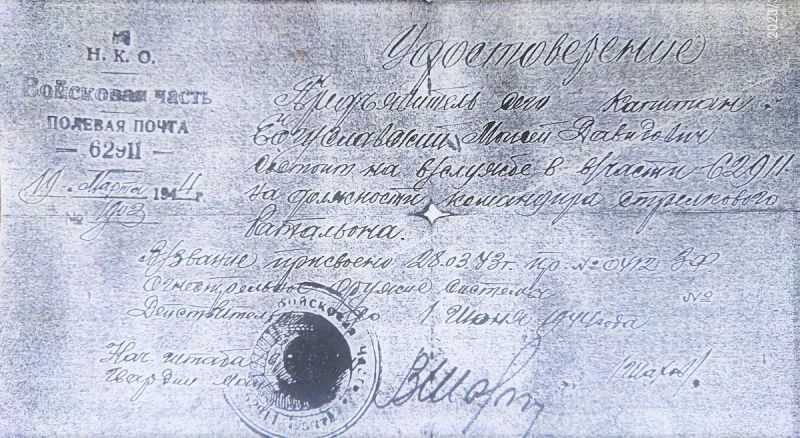 Н. К. О.
Войсковая часть
ПОЛЕВАЯ ПОЧТА
— 62911 —
19 Марта 1944 г.
№ 1903
Удостоверение
Предъявитель сего капитан
Богуславский Моисей Давидович
состоит на в/службе в в/части 62911
на должности командира стрелкового
батальона.
В/звание присвоено 28.03.43г. пр. № 0412 ЗФ
Огнестрельное оружие системы №
Действительно до 1 Июня 1944 года
Нач штаба
Гвардии май
Войсковая часть